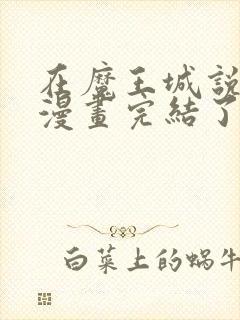 在魔王城說
漫畫完結了
白菜上的蝸牛